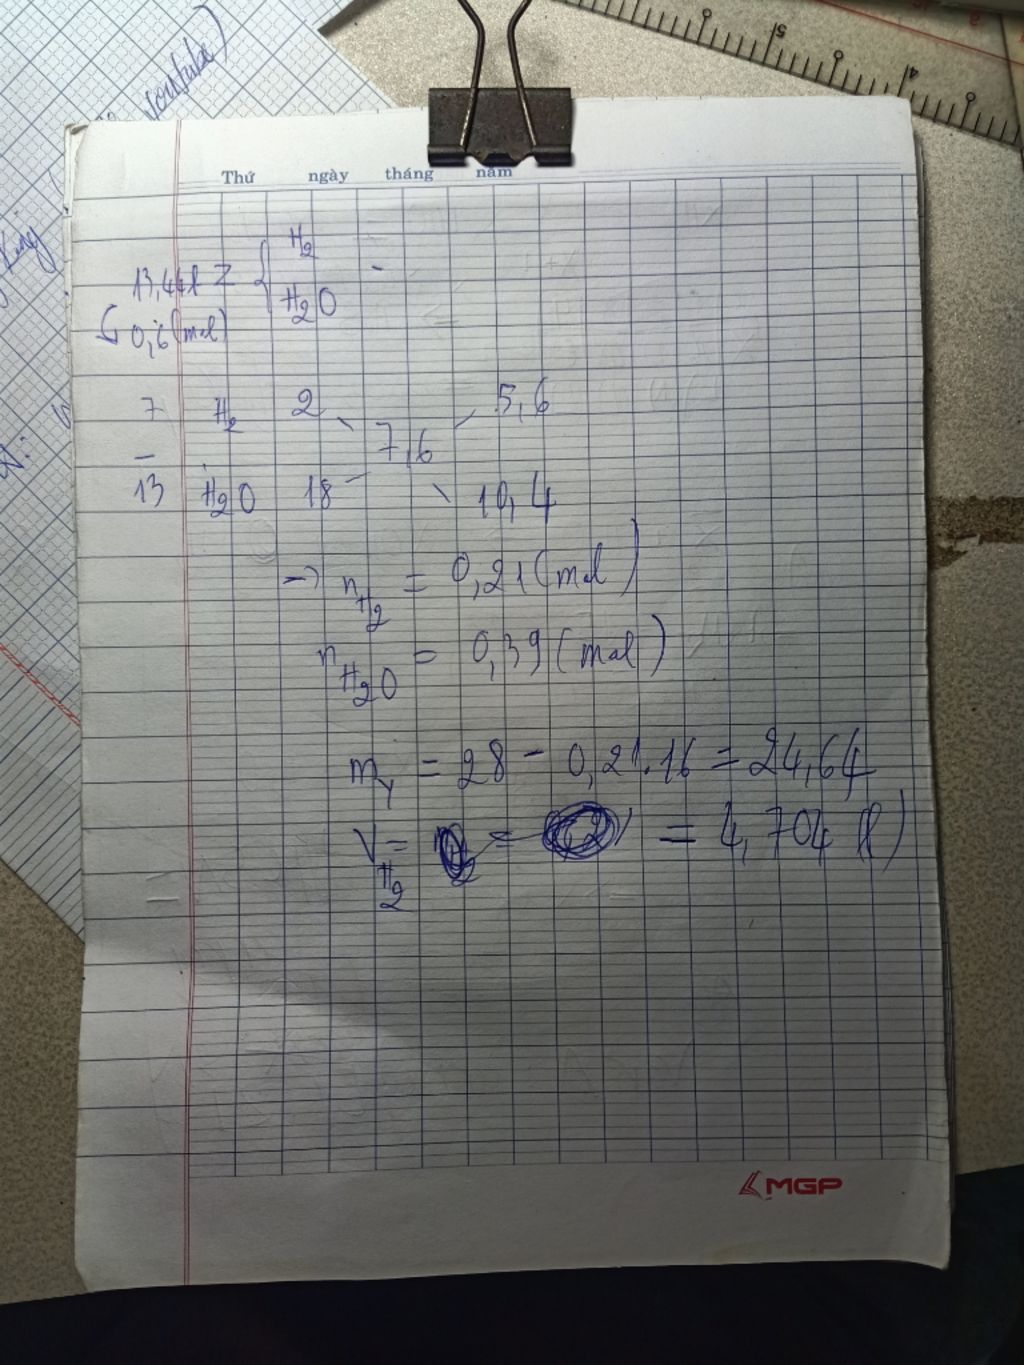 youtube)
Thứ ngày tháng năm
13,44l Z { H2
H2O
↳ 0,6 (mol)
7 H2 2 5,6
– 7,6
13 H2O 18 10,4
→ nH2 = 0,21 (mol)
nH2O = 0,39 (mol)
mY = 28 - 0,21.16 = 24,64
VH2 = = = 4,704 (l)
MGP
5
4